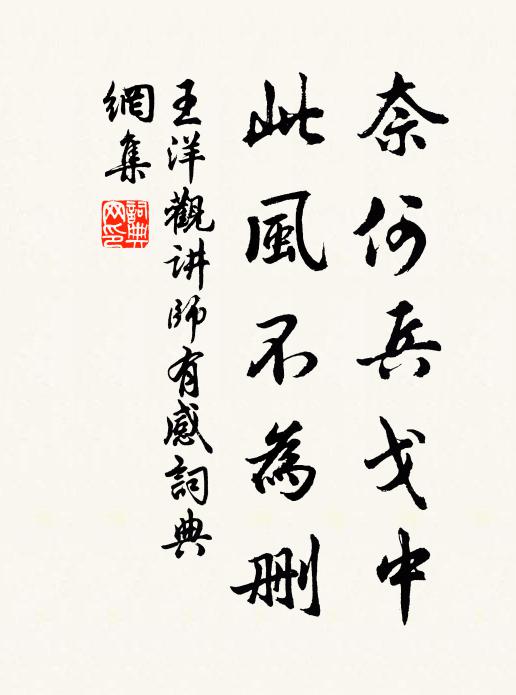 奈何兵戈中
此風不為刪
王洋觀讲師有感詞典
網集
詞典網印